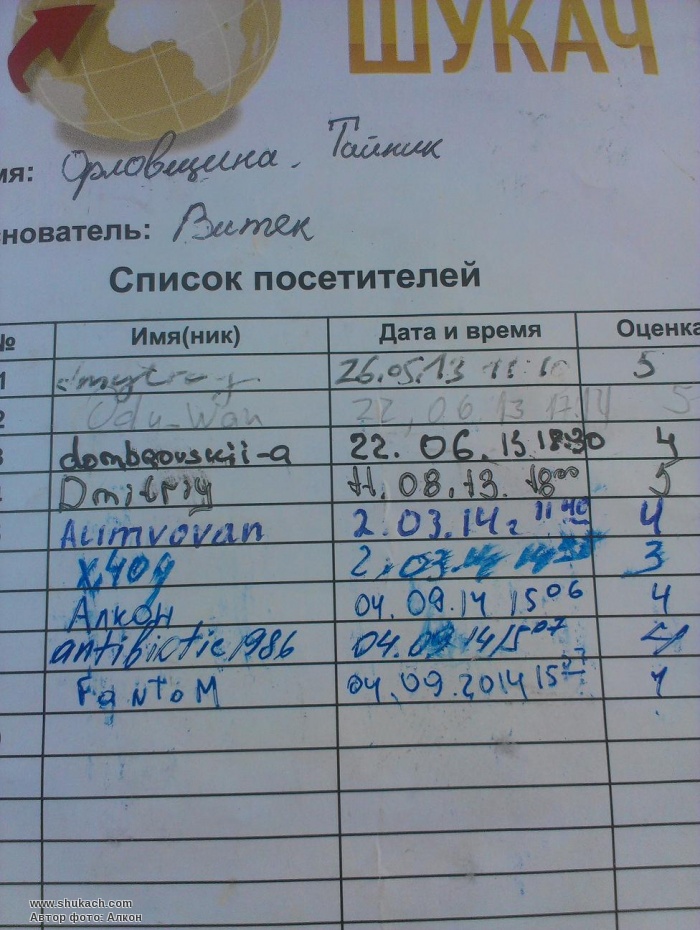 ШУКАЧ
мя: Орловщина. Тайник
нователь: Витек
Список посетителей
№ Имя(ник) Дата и время Оценка
1 26.05.13 11:10 5
2 22.06.13 17.14 5
3 dombrovskii-a 22.06.13 18:30 4
Dmitriy 11.08.13. 18⁰⁰ 5
Alimvovan 2.03.14г 11⁴⁰ 4
2. 3
Алкон 04.09.14 15⁰⁶ 4
antibiotic1986 04.09.14 15⁰⁷
FantoM 04.09.2014 15
www.shukach.com
Автор фото: Алкон